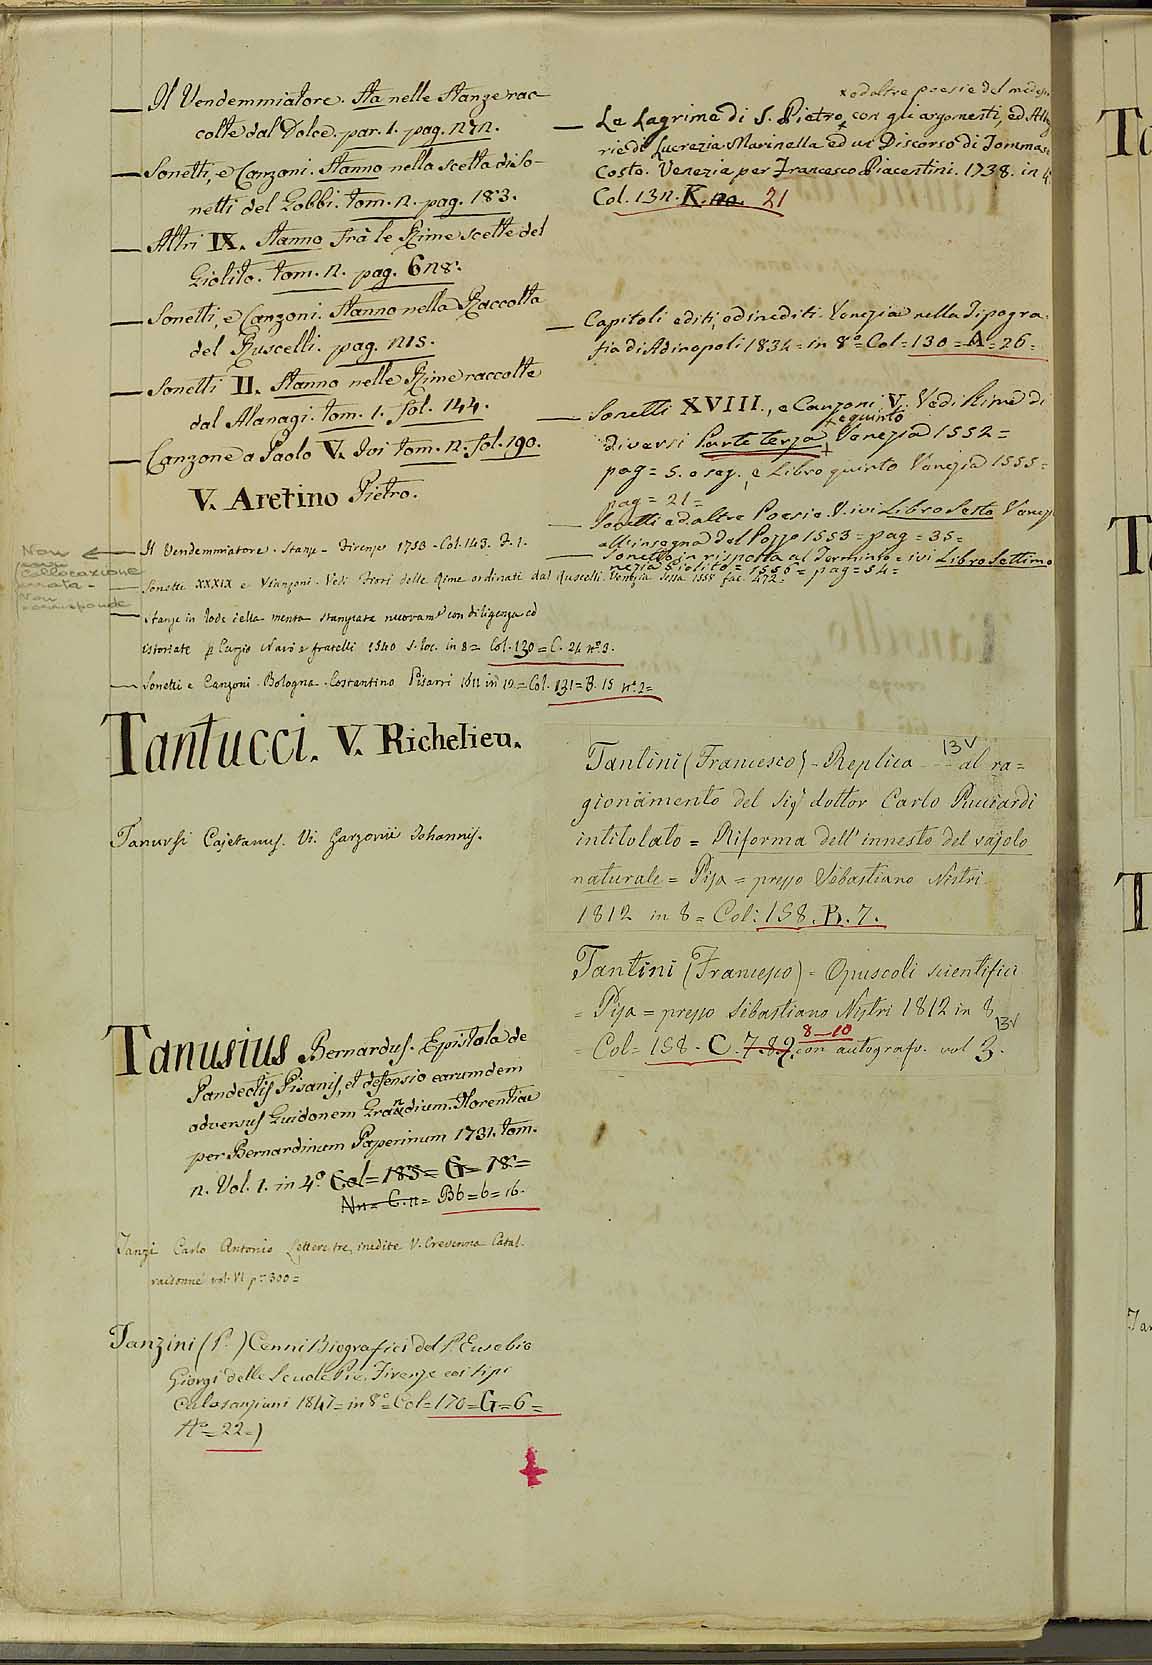 — Il Vendemmiatore. Sta nelle Stanze rac-
colte dal Dolce. par. 1. pag. 272.
— Sonetti, e Canzoni. Stanno nella scelta di So-
netti del Gobbi. tom. 2. pag. 183.
— Altri IX. Stanno frà le Rime scelte del
Giolito. tom. 2. pag. 628.
— Sonetti, e Canzoni. Stanno nella Raccolta
del Ruscelli. pag. 215.
— Sonetti II. Stanno nelle Rime raccolte
dal Atanagi. tom. 1. fol. 144.
— Canzone a Paolo V. Ivi tom. 2. fol. 190.
V. Aretino Pietro.
— Il Vendemmiatore. Stanze - Firenze 1753 - Col. 143. F. 1.
Non
collocazione
errata -
Non
corrisponde
— Sonetti XXXIX e Canzoni. Vedi Fiori delle Rime ordinati dal Ruscelli. Venezia Sessa 1558 fac. 472.
— Stanze in lode della menta stampate nuovam.e con diligenza ed
istoriate p Curzio Navi e fratelli 1540 s. loc. in 8 = Col. 130 = C. 24 n.o 3.
— Sonetti e Canzoni. Bologna. Costantino Pisarri 1711 in 12 = Col. 131 = B. 15 n.o 2 =
Tantucci. V. Richelieu.
Tanursi Cajetanus. Vi. Garzonii Johannis.
Tanusius Bernardus. Epistola de
Pandectis Pisanis, et defensio earumdem
adversus Guidonem Grandium. Florentiae
per Bernardinum Paperinum 1731. tom.
2. Vol. 1. in 4.o Col = 185 = G = 18 =
Nn = C. 11 = Bb = 6 = 16.
Tanzi Carlo Antonio Lettere tre inedite V. Crevenna Catal.
raisonné vol. VI p. 300 =
Tanzini (P. ) Cenni Biografici del P. Eusebio
Giorgi delle Scuole Pie. Firenze coi tipi
Calasanziani 1847 = in 8.o = Col = 170 = G = 6 =
N.o = 22 = )
x ed altre poesie del medesi
— Le Lagrime di S. Pietro x con gli argomenti, ed Alleg
rie di Lucrezia Marinella ed un Discorso di Tommaso
Costo. Venezia per Francesco Piacentini. 1738. in 4.
Col. 132. K. 21
— Capitoli editi, ed inediti. Venezia nella Tipogra-
fia di Alvisopoli 1834 = in 8.o = Col = 130 = A = 26 =
— Sonetti XVIII., e Canzoni V. Vedi Rime di
e quinto
diversi Parte terza Venezia 1552 =
pag = 5. e seg., e Libro quinto Venezia 1555 =
pag = 21 =
— Sonetti ed altre Poesie. V. ivi Libro Sesto Venez
all'insegna del Pozzo 1553 = pag = 35 =
— Sonetto in risposta al Terminio = ivi Libro Settimo
nezia Giolito = 1556 = pag = 54 =
Tantini (Francesco) - Replica al ra=
13V
gionamento del Sig.r dottor Carlo Ricciardi
intitolato = Riforma dell'innesto del vajolo
naturale = Pisa = presso Sebastiano Nistri
1812 in 8 = Col: 158. B. 7.
Tantini (Francesco) = Opuscoli scientifici
= Pisa = presso Sebastiano Nistri 1812 in 8
13V
8—10
= Col = 158. C. 7-8-9. con autografo. vol 3.